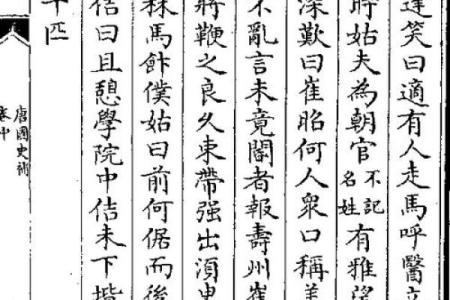 達笑曰適有人走馬呼醫立
時姑夫為朝官不記名姓有雅望
深歎曰崔昭何人衆口稱美
不亂言未竟閽者報壽州崔
將鞭之良久束帶强出須臾
秣馬飰僕姑曰前何倨而後
佶曰且憩學院中佶未下堦
千匹
唐國史補
卷中